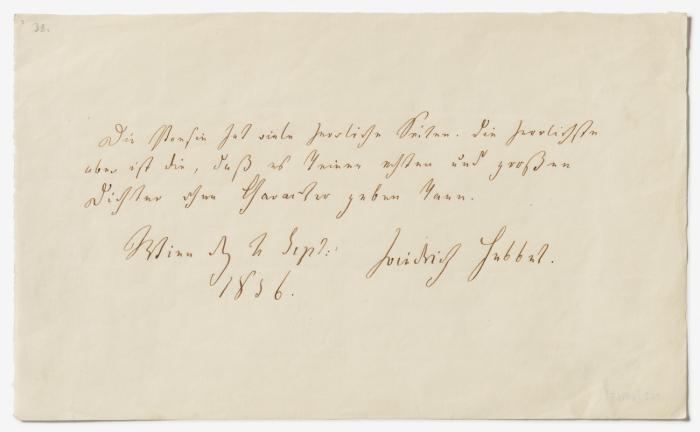 38.
Die Poesie hat viele herrliche Seiten. Die herrlichste
aber ist die, daß es keinen echten und großen
Dichter ohne Character geben kann.
Wien d. Sept: Friedrich Hebbel.
1856.